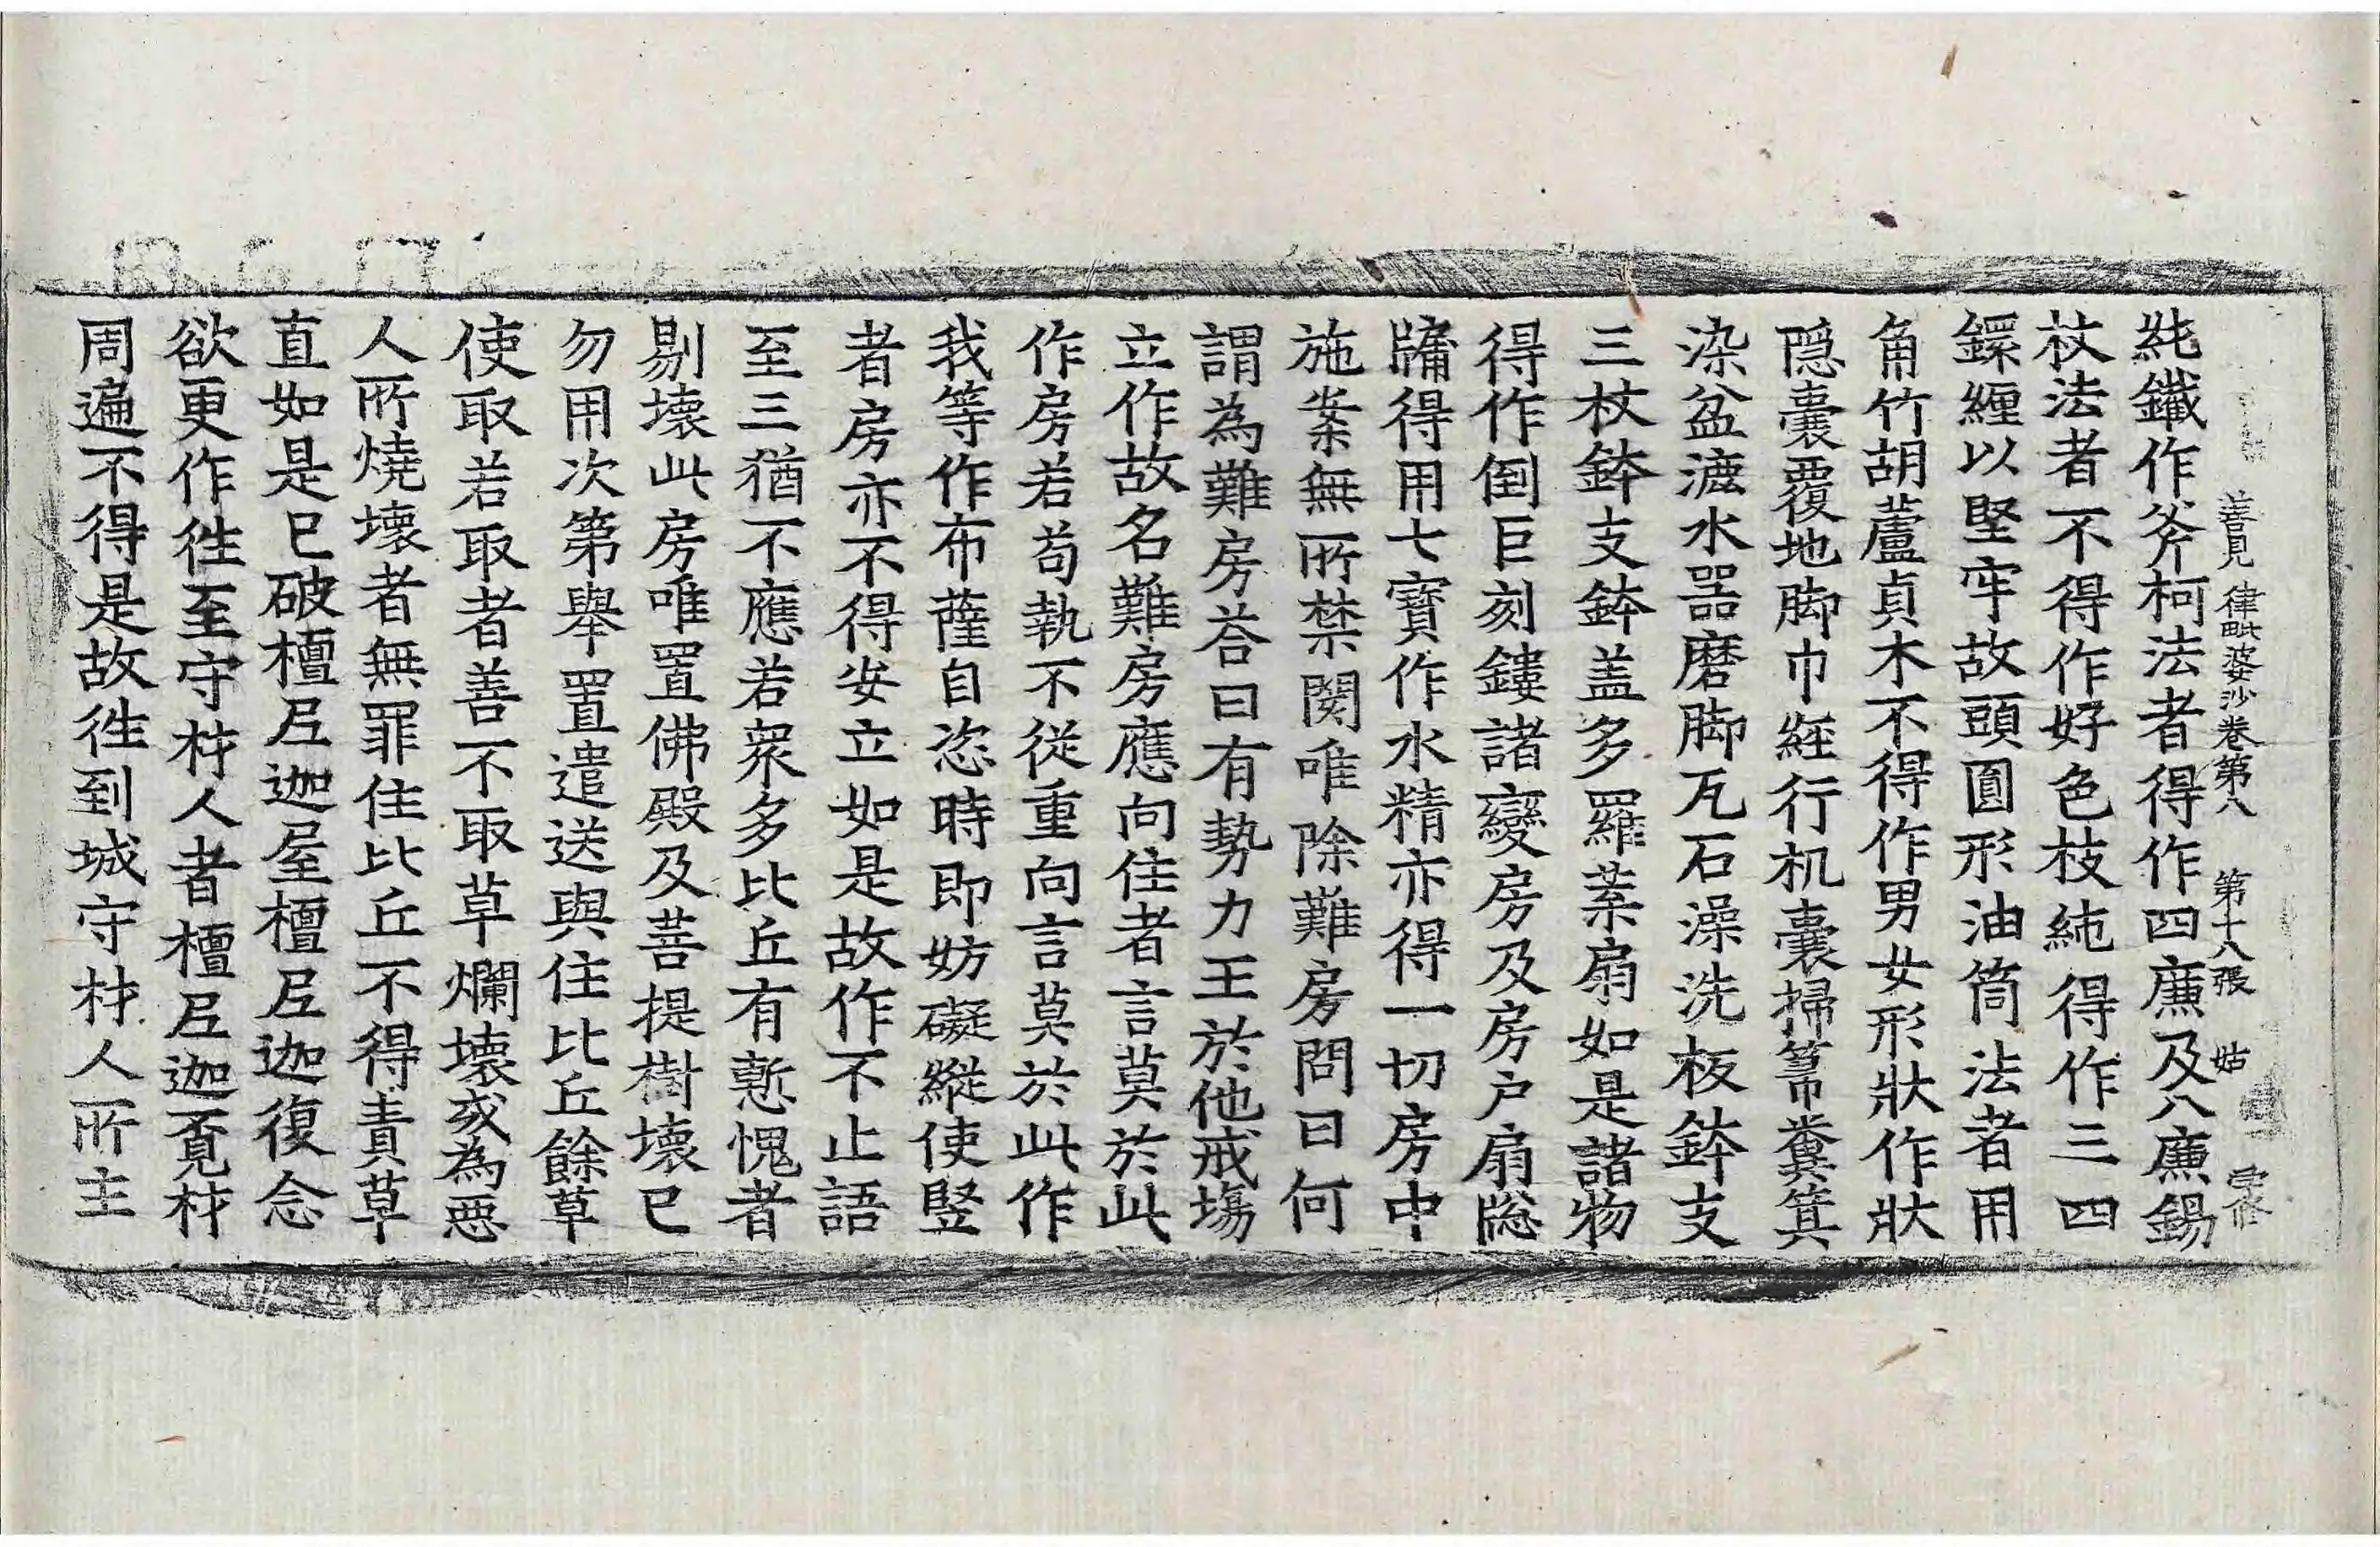 善見律毗婆沙卷第八 第十八張 姑
純鐵作斧柯法者得作四廉及八廉錫
杖法者不得作好色枝純得作三四
鏍纏以堅牢故頭圓形油筒法者用
角竹胡蘆貞木不得作男女形狀作狀
隱囊覆地脚巾經行机囊掃箒糞箕
染盆漉水器磨脚瓦石澡洗板鉢支
三杖鉢支鉢盖多羅葉扇如是諸物
得作倒巨刻鏤諸變房及房户扇牎
牗得用七寶作水精亦得一切房中
施案無所禁閡唯除難房問曰何
謂為難房荅曰有勢力王於他戒場
立作故名難房應向住者言莫於此
作房若苟執不從重向言莫於此作
我等作布薩自恣時即妨礙縱使竪
者房亦不得安立如是故作不止語
至三猶不應若衆多比丘有慙愧者
剔壞此房唯置佛殿及菩提樹壞已
勿用次第舉置遣送與住比丘餘草
使取若取者善不取草爛壞或為惡
人所燒壞者無罪住比丘不得責草
直如是已破檀尼迦屋檀尼迦復念
欲更作徃至守材人者檀尼迦覔材
周遍不得是故徃到城守材人所主